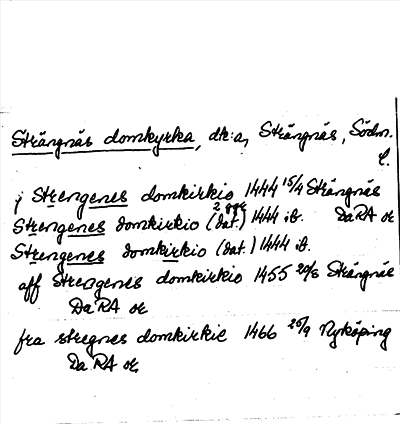 Strängnäs domkyrka, dk:a, Strängnäs, Södm.
l.
j Strengenes domkirkio 1444 15/4 Strängnäs
Strengenes domkirkio (dat.) 2 ggr 1444 ib. DaRA or
Strengenes domkirkio (dat.) 1444 ib.
aff Strengenes domkirkio 1455 20/8 Strängnäs
DaRA or
fra stregnes domkirkie 1466 25/9 Nyköping
DaRA or.